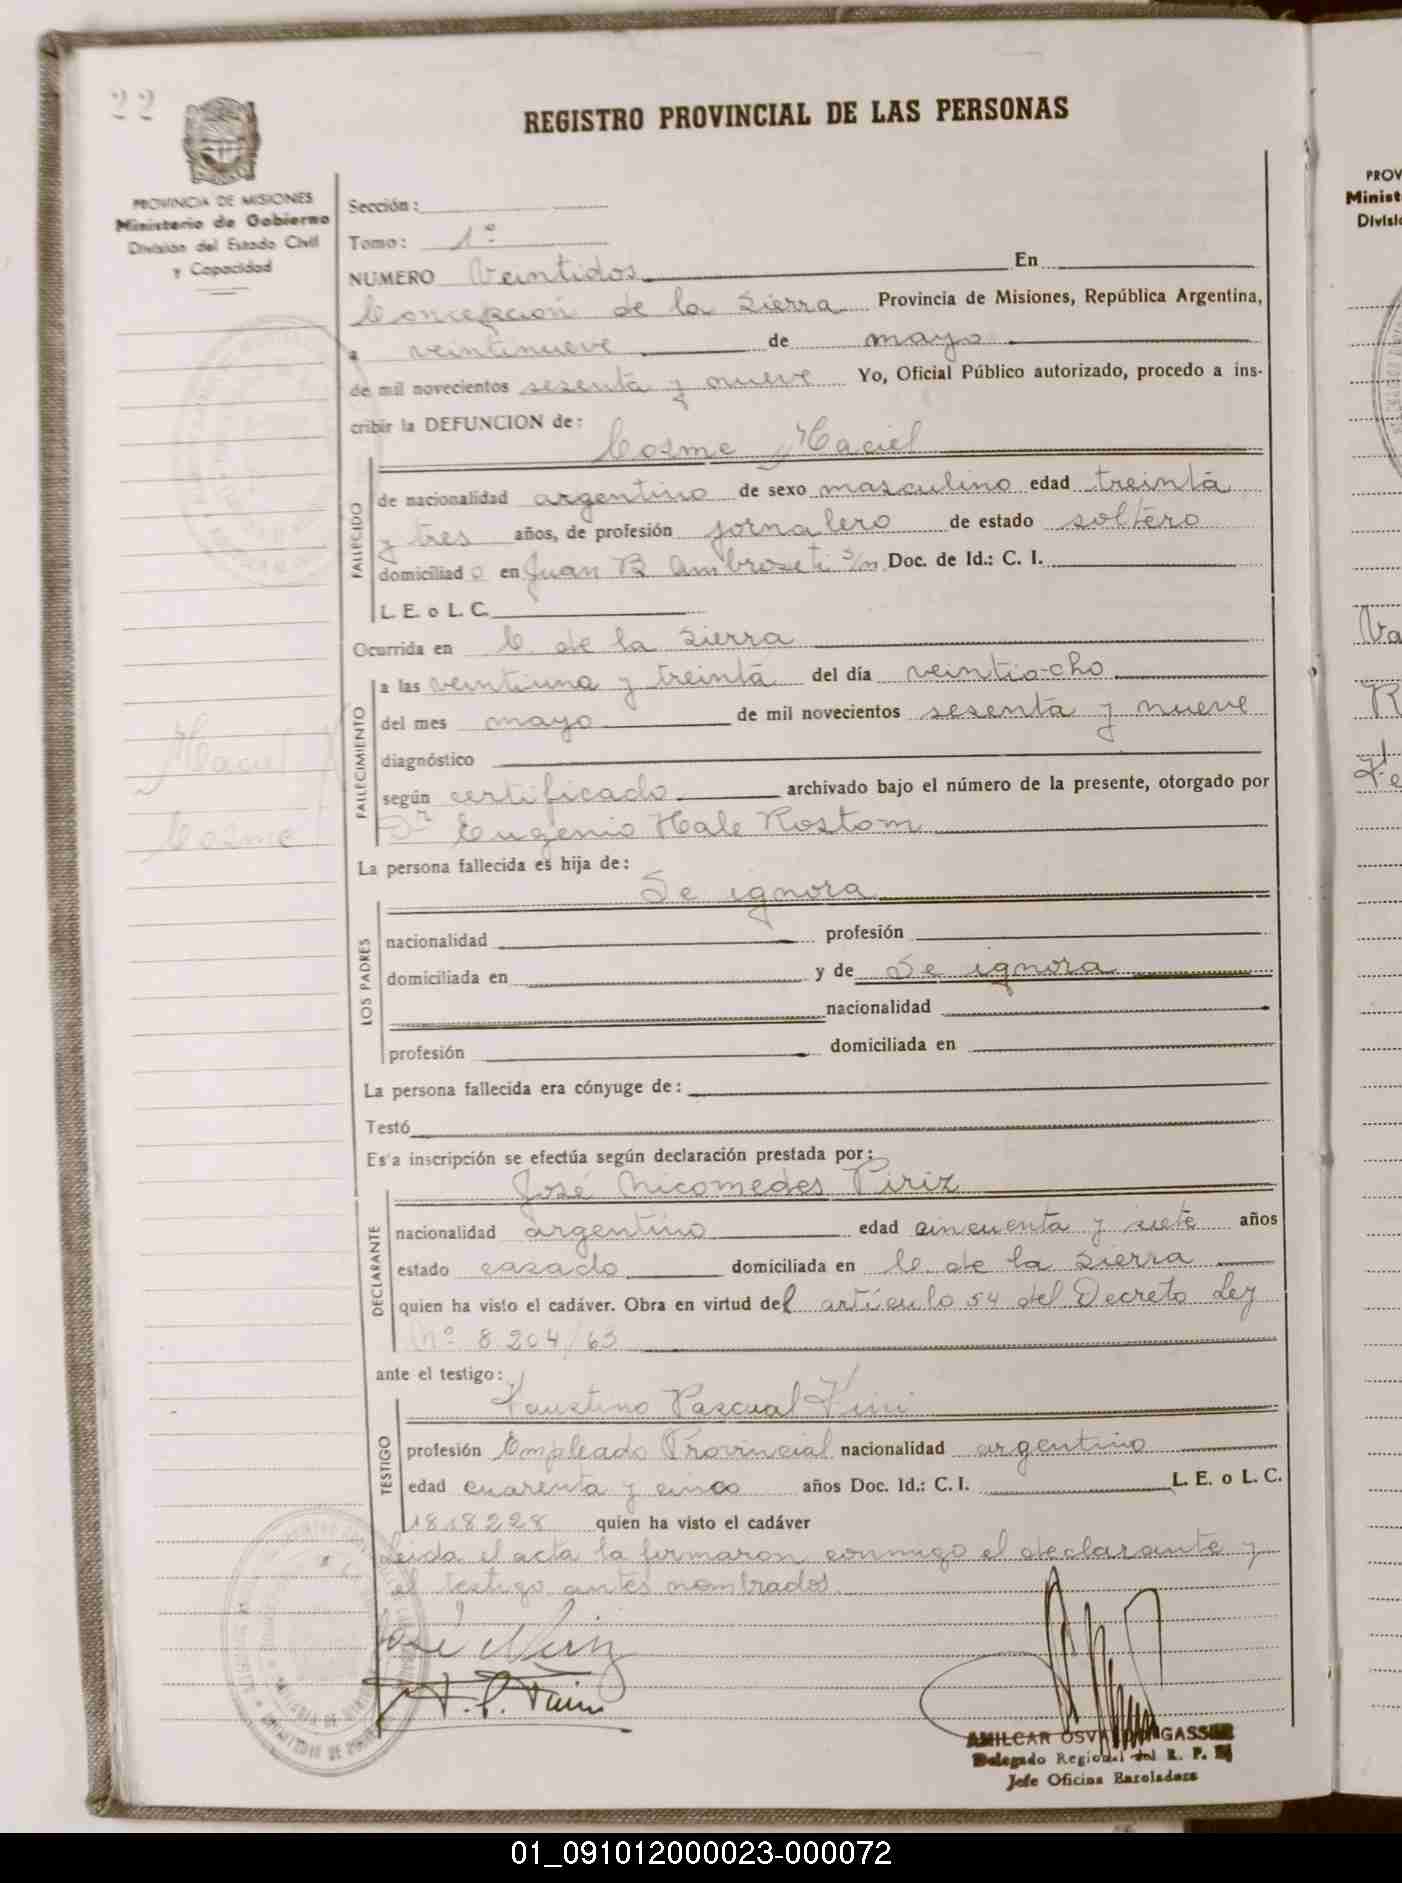 22
REGISTRO PROVINCIAL DE LAS PERSONAS
PROVINCIA DE MISIONES
Ministerio de Gobierno
División del Estado Civil
y Capacidad
Sección:
Tomo: 1º
NUMERO Veintidos En
Concepción de la Sierra Provincia de Misiones, República Argentina,
a veintinueve de mayo
de mil novecientos sesenta y nueve Yo, Oficial Público autorizado, procedo a ins-
cribir la DEFUNCION de:
Cosme Maciel
FALLECIDO
de nacionalidad argentino de sexo masculino edad treinta
y tres años, de profesión jornalero de estado soltero
domiciliado en Juan B Ambroseti s/n Doc. de Id.: C. I.
L. E. o L. C.
Ocurrida en C. de la Sierra
FALLECIMIENTO
a las veintiuna y treinta del día veintiocho
del mes mayo de mil novecientos sesenta y nueve
diagnóstico
según certificado archivado bajo el número de la presente, otorgado por
Dr Eugenio Hale Rostom
Maciel
Cosme
La persona fallecida es hija de:
Se ignora
LOS PADRES
nacionalidad profesión
domiciliada en y de Se ignora
nacionalidad
profesión domiciliada en
La persona fallecida era cónyuge de:
Testó
Es'a inscripción se efectúa según declaración prestada por:
José Nicomedes Piriz
DECLARANTE
nacionalidad argentino edad cincuenta y siete años
estado casado domiciliada en C. de la Sierra
quien ha visto el cadáver. Obra en virtud del artículo 54 del Decreto Ley
Nº 8204/63
ante el testigo:
Faustino Pascual
TESTIGO
profesión Empleado Provincial nacionalidad argentino
edad cuarenta y cinco años Doc. Id.: C. I. L. E. o L. C.
1818228 quien ha visto el cadáver
Leida el acta la firmaron conmigo el declarante y
el testigo antes nombrados
José
AMILCAR GASSER
Delegado Regional del R. P.
Jefe Oficina Enroladora
PROV
Minist
Divisi
01_091012000023-000072